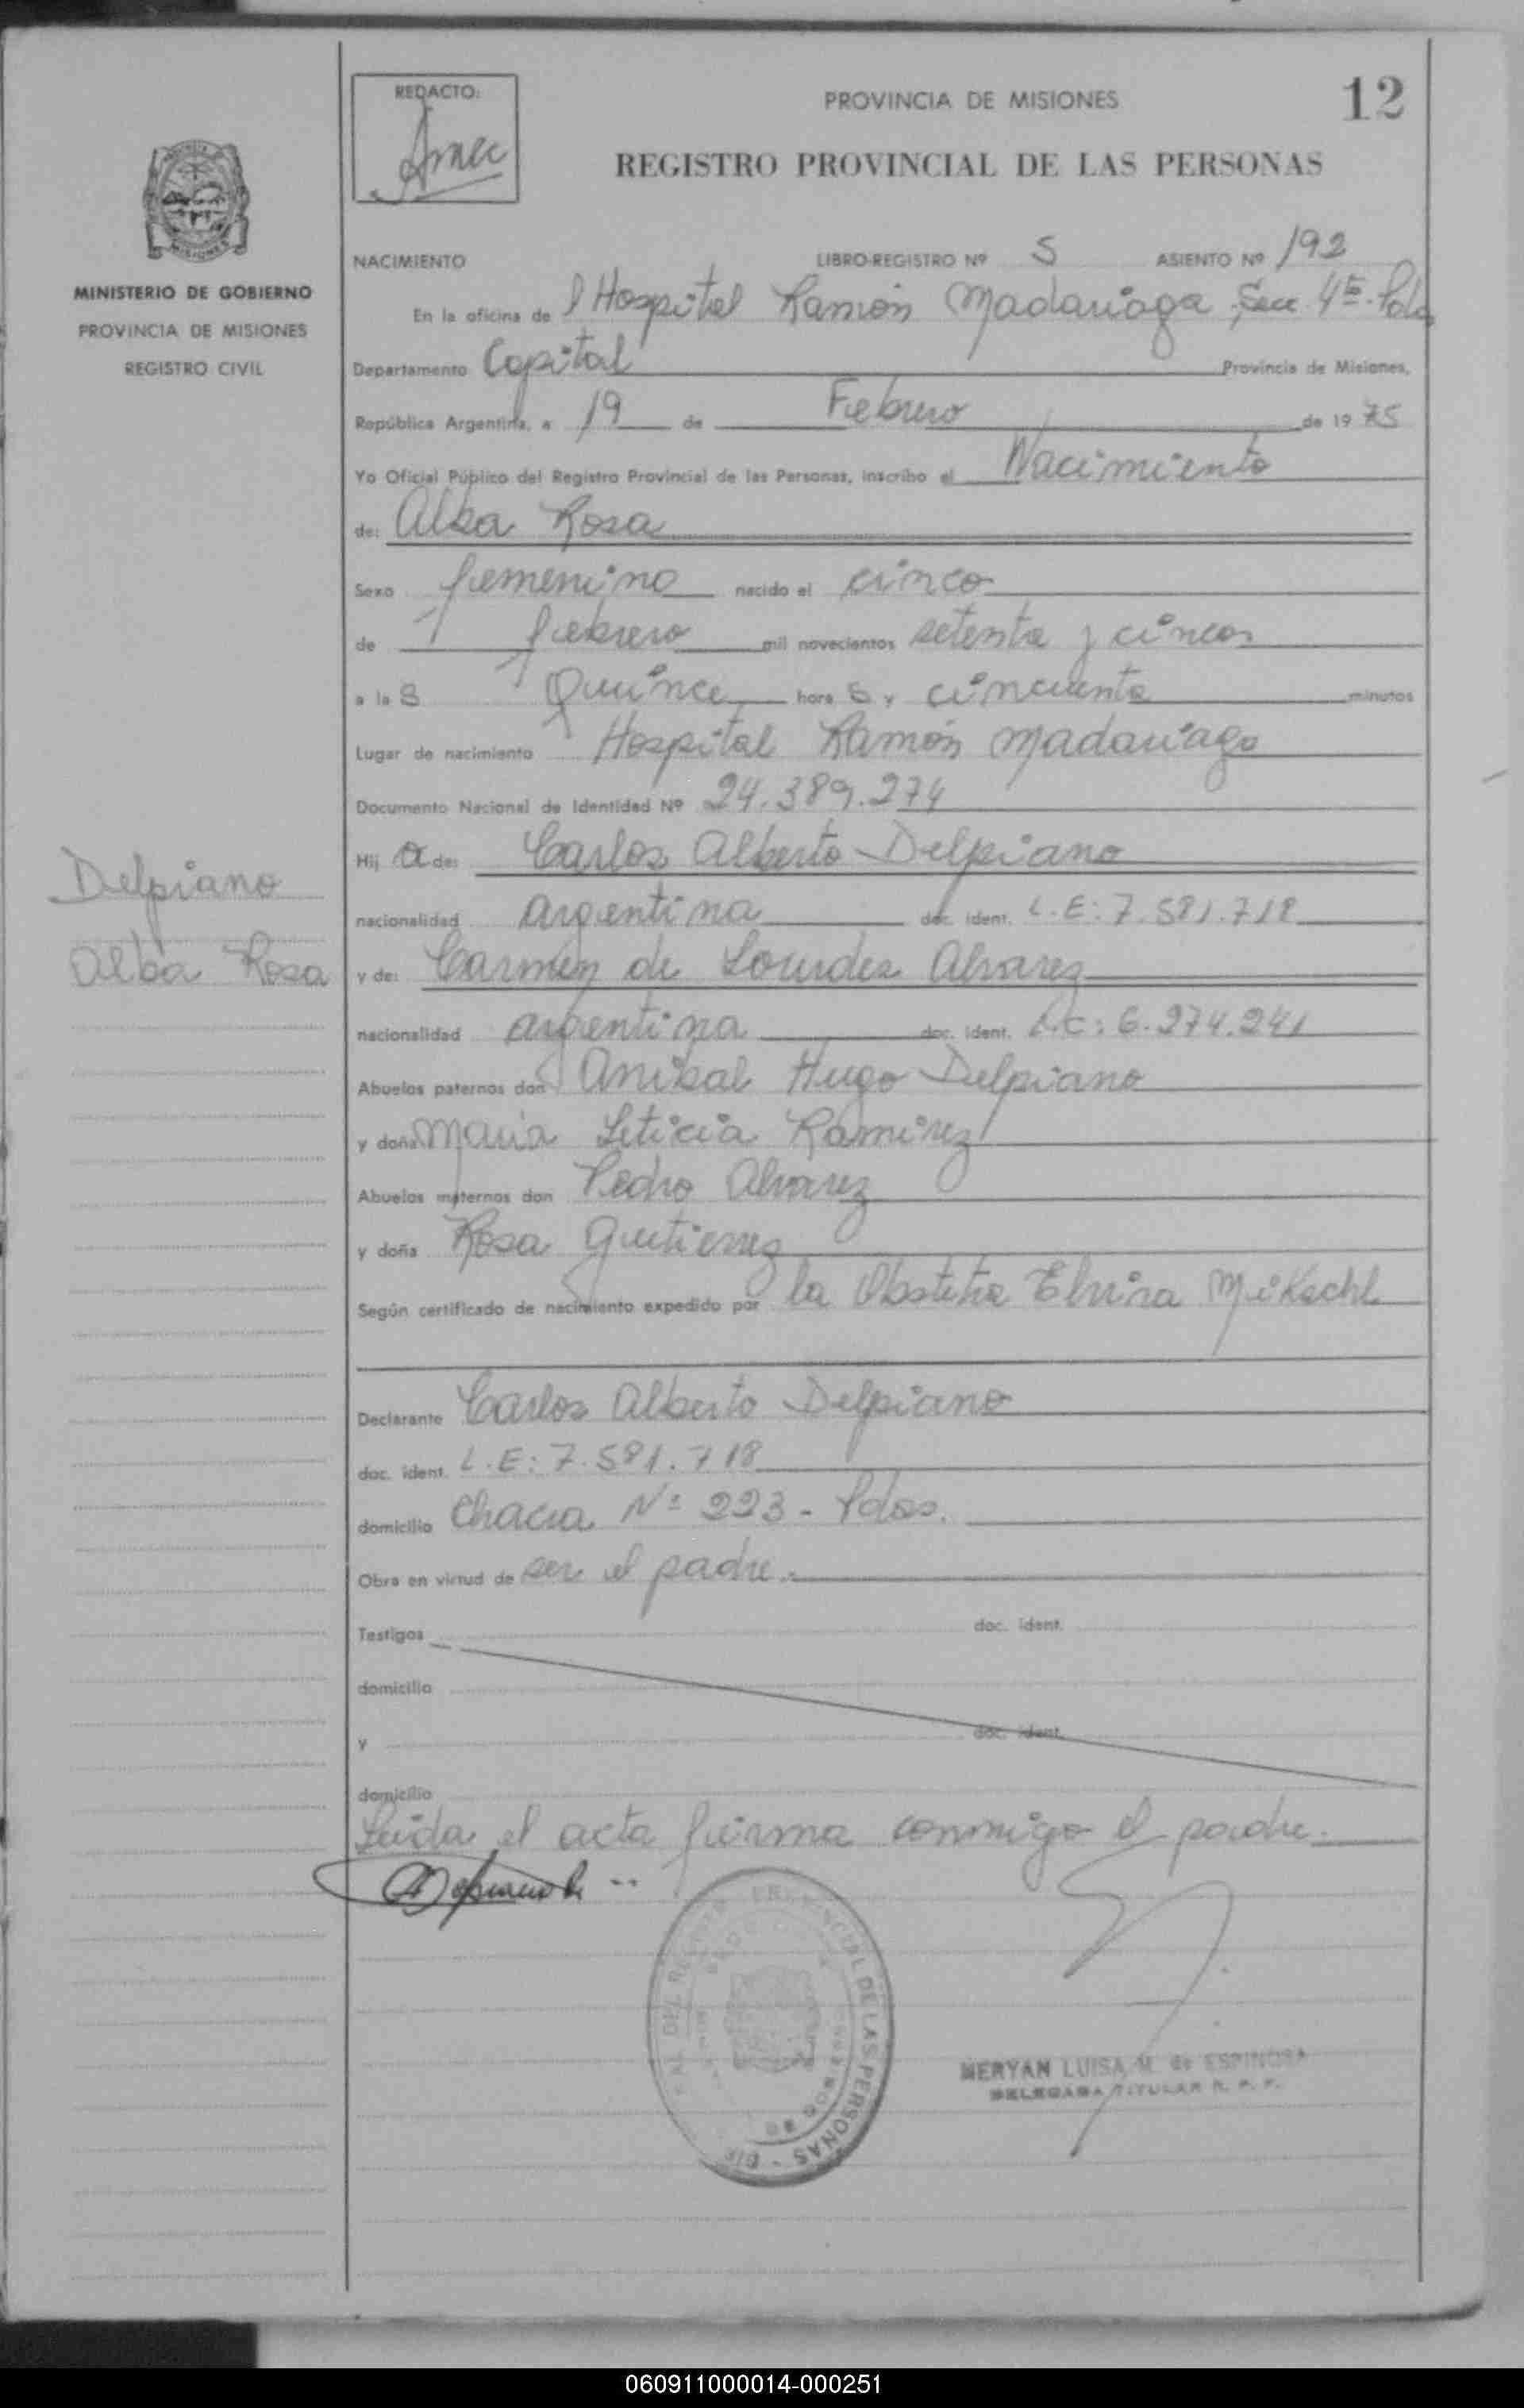 REDACTO:
PROVINCIA DE MISIONES
12
REGISTRO PROVINCIAL DE LAS PERSONAS
MISIONES
MINISTERIO DE GOBIERNO
PROVINCIA DE MISIONES
REGISTRO CIVIL
NACIMIENTO LIBRO-REGISTRO Nº 5 ASIENTO Nº 192
En la oficina de l Hospital Ramón Madariaga Secc 4ta
Departamento Capital Provincia de Misiones,
República Argentina, a 19 de Febrero de 1975
Yo Oficial Público del Registro Provincial de las Personas, inscribo el Nacimiento
de: Alba Rosa
Sexo femenino nacido el cinco
de febrero mil novecientos setenta y cinco
a la s Quince hora s y cincuenta minutos
Lugar de nacimiento Hospital Ramón Madariaga
Documento Nacional de Identidad Nº 24.389.274
Hij a de: Carlos Alberto Delpiano
nacionalidad argentina doc. ident. L.E: 7.581.718
Delpiano
Alba Rosa
y de: Carmen de Lourdes Alvarez
nacionalidad argentina doc. ident. L.C: 6.274.241
Abuelos paternos don Anibal Hugo Delpiano
y doña Maria Leticia Ramirez
Abuelos maternos don Pedro Alvarez
y doña Rosa Gutierrez
Según certificado de nacimiento expedido por la Obstetra Elvira
Declarante Carlos Alberto Delpiano
doc. ident. L.E: 7.581.718
domicilio Chacra Nº 223 - Pdas.
Obra en virtud de ser el padre.
Testigos doc. ident.
domicilio
y doc. ident.
domicilio
Leida el acta firma conmigo el padre.
DE LAS PERSONAS
MERYAN LUISA M. de ESPINOSA
DELEGADA TITULAR R. P. P.
060911000014-000251